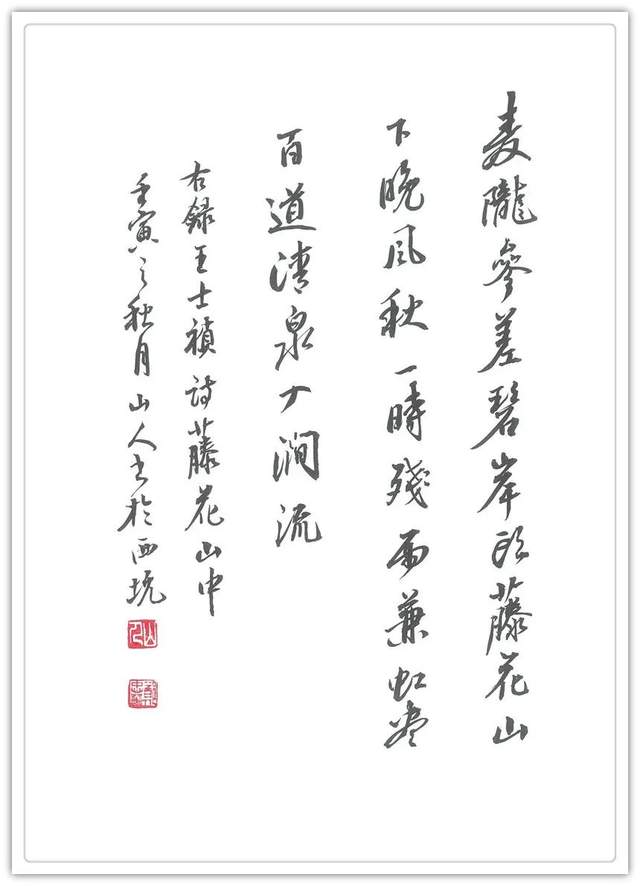 麦隴參差碧岸頭藤花山
下晚风秋一時殘雨兼虹尽
百道清泉入澗流
右録王士禎詩藤花山中
壬寅之秋月山人书於西坑